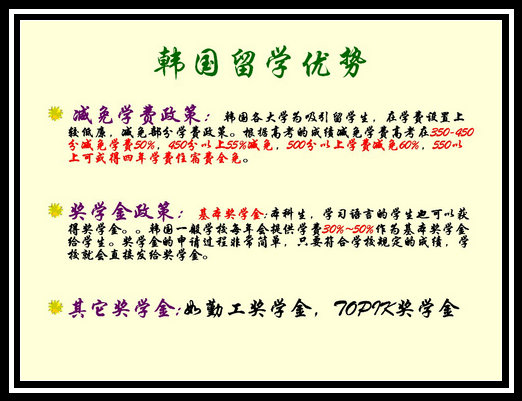 韩国留学优势
减免学费政策：韩国各大学为吸引留学生，在学费设置上
较低廉，减免部分学费政策。根据高考的成绩减免学费高考在350-450
分减免学费50%，450分以上55%减免，500分以上学费减免60%，550以
上可或得四年学费住宿费全免。
奖学金政策：基本奖学金:本科生，学习语言的学生也可以获
得奖学金。。韩国一般学校每年会提供学费30%~50%作为基本奖学金
给学生。奖学金的申请过程非常简单，只要符合学校规定的成绩，学
校就会直接发给奖学金。
其它奖学金:如勤工奖学金，TOPIK奖学金